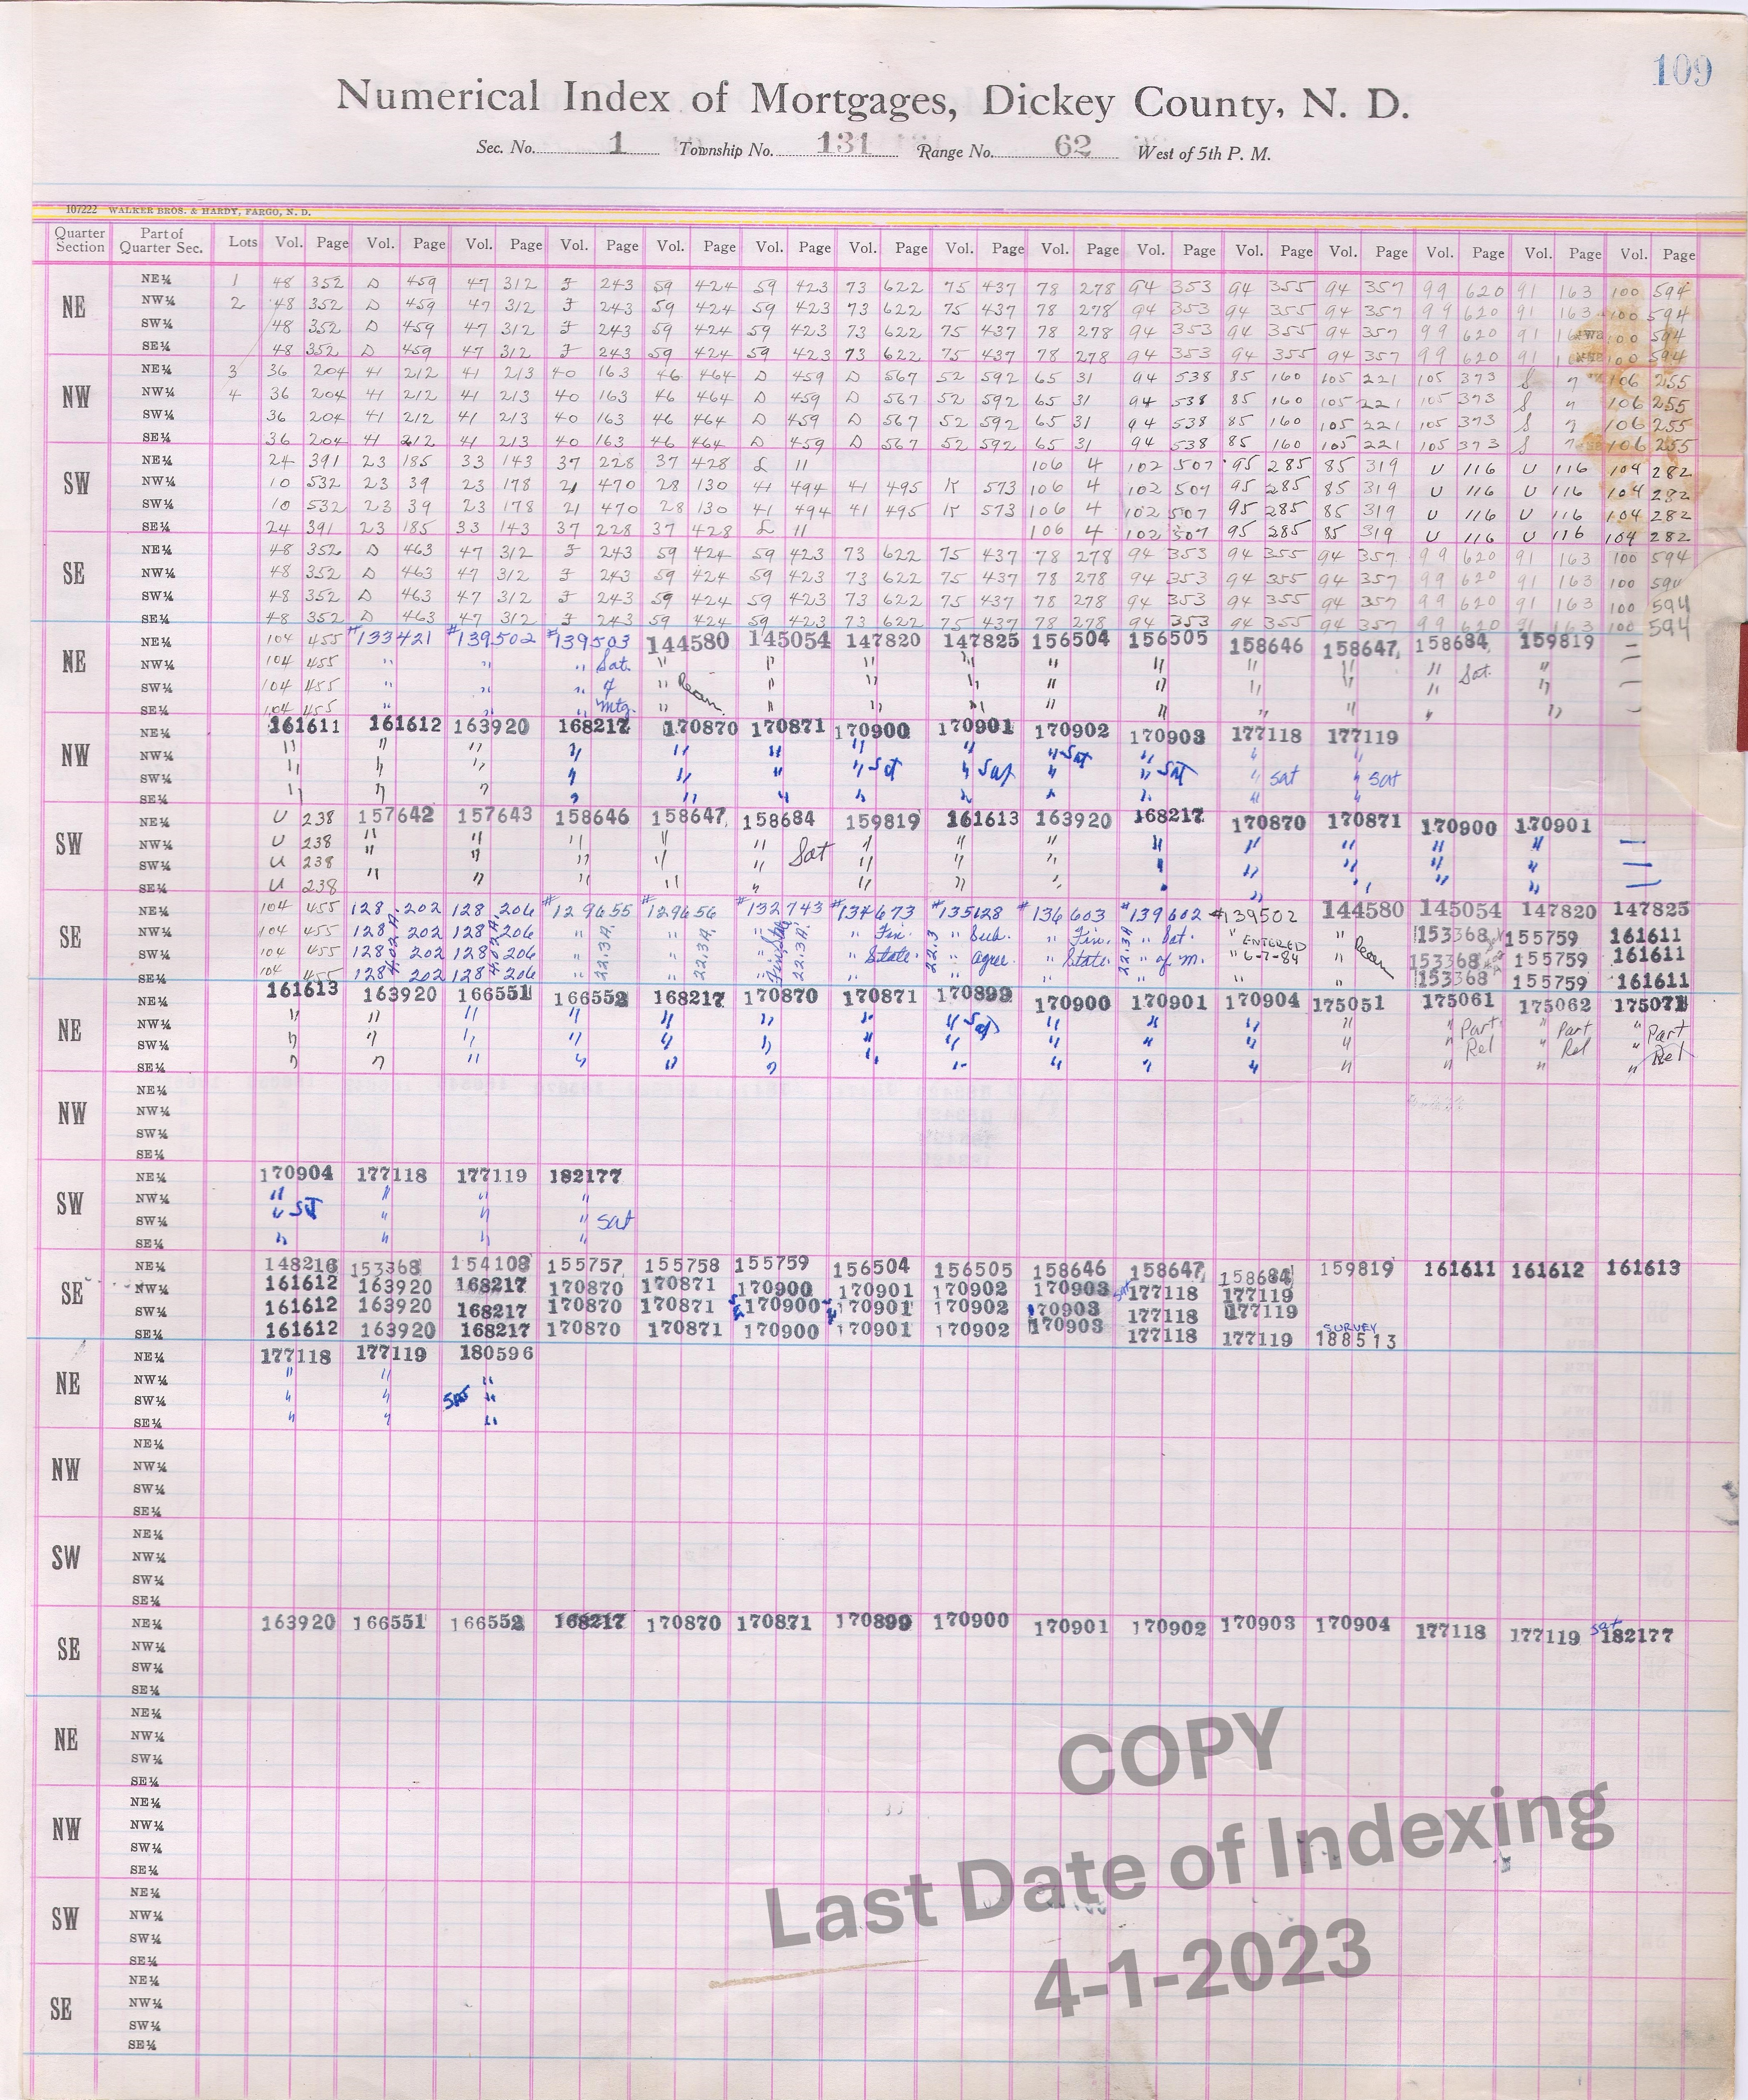 109
Numerical Index of Mortgages, Dickey County, N. D.
Sec. No. 1 Township No. 131 Range No. 62 West of 5th P. M.
107222 WALKER BROS. & HARDY, FARGO, N. D.
Quarter Section Part of Quarter Sec. Lots Vol. Page Vol. Page Vol. Page Vol. Page Vol. Page Vol. Page Vol. Page Vol. Page Vol. Page Vol. Page Vol. Page Vol. Page Vol. Page Vol. Page Vol. Page
NE
NE¼ 1 48 352 D 459 47 312 F 243 59 424 59 423 73 622 75 437 78 278 94 353 94 355 94 357 99 620 91 163 100 594
NW¼ 2 48 352 D 459 47 312 F 243 59 424 59 423 73 622 75 437 78 278 94 353 94 355 94 357 99 620 91 163 100 594
SW¼ 48 352 D 459 47 312 F 243 59 424 59 423 73 622 75 437 78 278 94 353 94 355 94 357 99 620 91 100 594
SE¼ 48 352 D 459 47 312 F 243 59 424 59 423 73 622 75 437 78 278 94 353 94 355 94 357 99 620 91 100 594
NW
NE¼ 3 36 204 41 212 41 213 40 163 46 464 D 459 D 567 52 592 65 31 94 538 85 160 105 221 105 373 S 7 106 255
NW¼ 4 36 204 41 212 41 213 40 163 46 464 D 459 D 567 52 592 65 31 94 538 85 160 105 221 105 373 S 7 106 255
SW¼ 36 204 41 212 41 213 40 163 46 464 D 459 D 567 52 592 65 31 94 538 85 160 105 221 105 373 S 7 106 255
SE¼ 36 204 41 212 41 213 40 163 46 464 D 459 D 567 52 592 65 31 94 538 85 160 105 221 105 373 S 7 106 255
SW
NE¼ 24 391 23 185 33 143 37 228 37 428 L 11 106 4 102 507 95 285 85 319 U 116 U 116 104 282
NW¼ 10 532 23 39 23 178 21 470 28 130 41 494 41 495 K 573 106 4 102 507 95 285 85 319 U 116 U 116 104 282
SW¼ 10 532 23 39 23 178 21 470 28 130 41 494 41 495 K 573 106 4 102 507 95 285 85 319 U 116 U 116 104 282
SE¼ 24 391 23 185 33 143 37 228 37 428 L 11 106 4 102 507 95 285 85 319 U 116 U 116 104 282
SE
NE¼ 48 352 D 463 47 312 F 243 59 424 59 423 73 622 75 437 78 278 94 353 94 355 94 357 99 620 91 163 100 594
NW¼ 48 352 D 463 47 312 F 243 59 424 59 423 73 622 75 437 78 278 94 353 94 355 94 357 99 620 91 163 100 594
SW¼ 48 352 D 463 47 312 F 243 59 424 59 423 73 622 75 437 78 278 94 353 94 355 94 357 99 620 91 163 100 594
SE¼ 48 352 D 463 47 312 F 243 59 424 59 423 73 622 75 437 78 278 94 353 94 355 94 357 99 620 91 163 100 594
NE
NE¼ 104 455 #133421 #139502 #139503 144580 145054 147820 147825 156504 156505 158646 158647 158684 159819
NW¼ 104 455 " " " Sat. " " " " " " " " " Sat. "
SW¼ 104 455 " " " of " " " " " " " " " "
SE¼ 104 455 " " " Mtg. " " " " " " " " " "
NW
NE¼ 161611 161612 163920 168217 170870 170871 170900 170901 170902 170903 177118 177119
NW¼ " " " " " " " " " Sat " " "
SW¼ " " " " " " " Sat " Sat " " Sat " Sat " Sat
SE¼ " " " " " " " " " " " "
SW
NE¼ U 238 157642 157643 158646 158647 158684 159819 161613 163920 168217 170870 170871 170900 170901
NW¼ U 238 " " " " " " " " " " " " "
SW¼ U 238 " " " " Sat " " " " " " " "
SE¼ U 238 " " " " " " " " " " " " "
SE
NE¼ 104 455 128 202 128 206 #129655 #129656 #132743 #134673 #135128 #136603 #139602 #139502 144580 145054 147820 147825
NW¼ 104 455 128 202 128 206 " 22.3A. " 22.3A. " 22.3A. " Fin. 22.3 " Sub. " Fin. 22.3A " Sat. " ENTERED " 153368 155759 161611
SW¼ 104 455 128 202 128 206 " " " " State. " agree. " State. " of m. " 6-7-84 " 153368 155759 161611
SE¼ 104 455 128 202 128 206 " " " " " " " " " 153368 155759 161611
NE
NE¼ 161613 163920 166551 166552 168217 170870 170871 170899 170900 170901 170904 175051 175061 175062 175071
NW¼ " " " " " " " " Sat " " " " " Part " Part " Part
SW¼ " " " " " " " " " " " " " Rel " Rel " Rel
SE¼ " " " " " " " " " " " " " " "
NW
NE¼
NW¼
SW¼
SE¼
SW
NE¼ 170904 177118 177119 182177
NW¼ " " " "
SW¼ " Sat " " " Sat
SE¼ " " " "
SE
NE¼ 148216 153368 154108 155757 155758 155759 156504 156505 158646 158647 158684 159819 161611 161612 161613
NW¼ 161612 163920 168217 170870 170871 170900 170901 170902 170903 Sat 177118 177119
SW¼ 161612 163920 168217 170870 170871 170900 170901 170902 170903 177118 177119
SE¼ 161612 163920 168217 170870 170871 170900 170901 170902 170903 177118 177119 SURVEY 188513
NE
NE¼ 177118 177119 180596
NW¼ " " "
SW¼ " " Sat "
SE¼ " " "
NW
NE¼
NW¼
SW¼
SE¼
SW
NE¼
NW¼
SW¼
SE¼
SE
NE¼ 163920 166551 166552 168217 170870 170871 170899 170900 170901 170902 170903 170904 177118 177119 Sat 182177
NW¼
SW¼
SE¼
NE
NE¼
NW¼
SW¼
SE¼
NW
NE¼
NW¼
SW¼
SE¼
SW
NE¼
NW¼
SW¼
SE¼
SE
NE¼
NW¼
SW¼
SE¼
COPY
Last Date of Indexing
4-1-2023